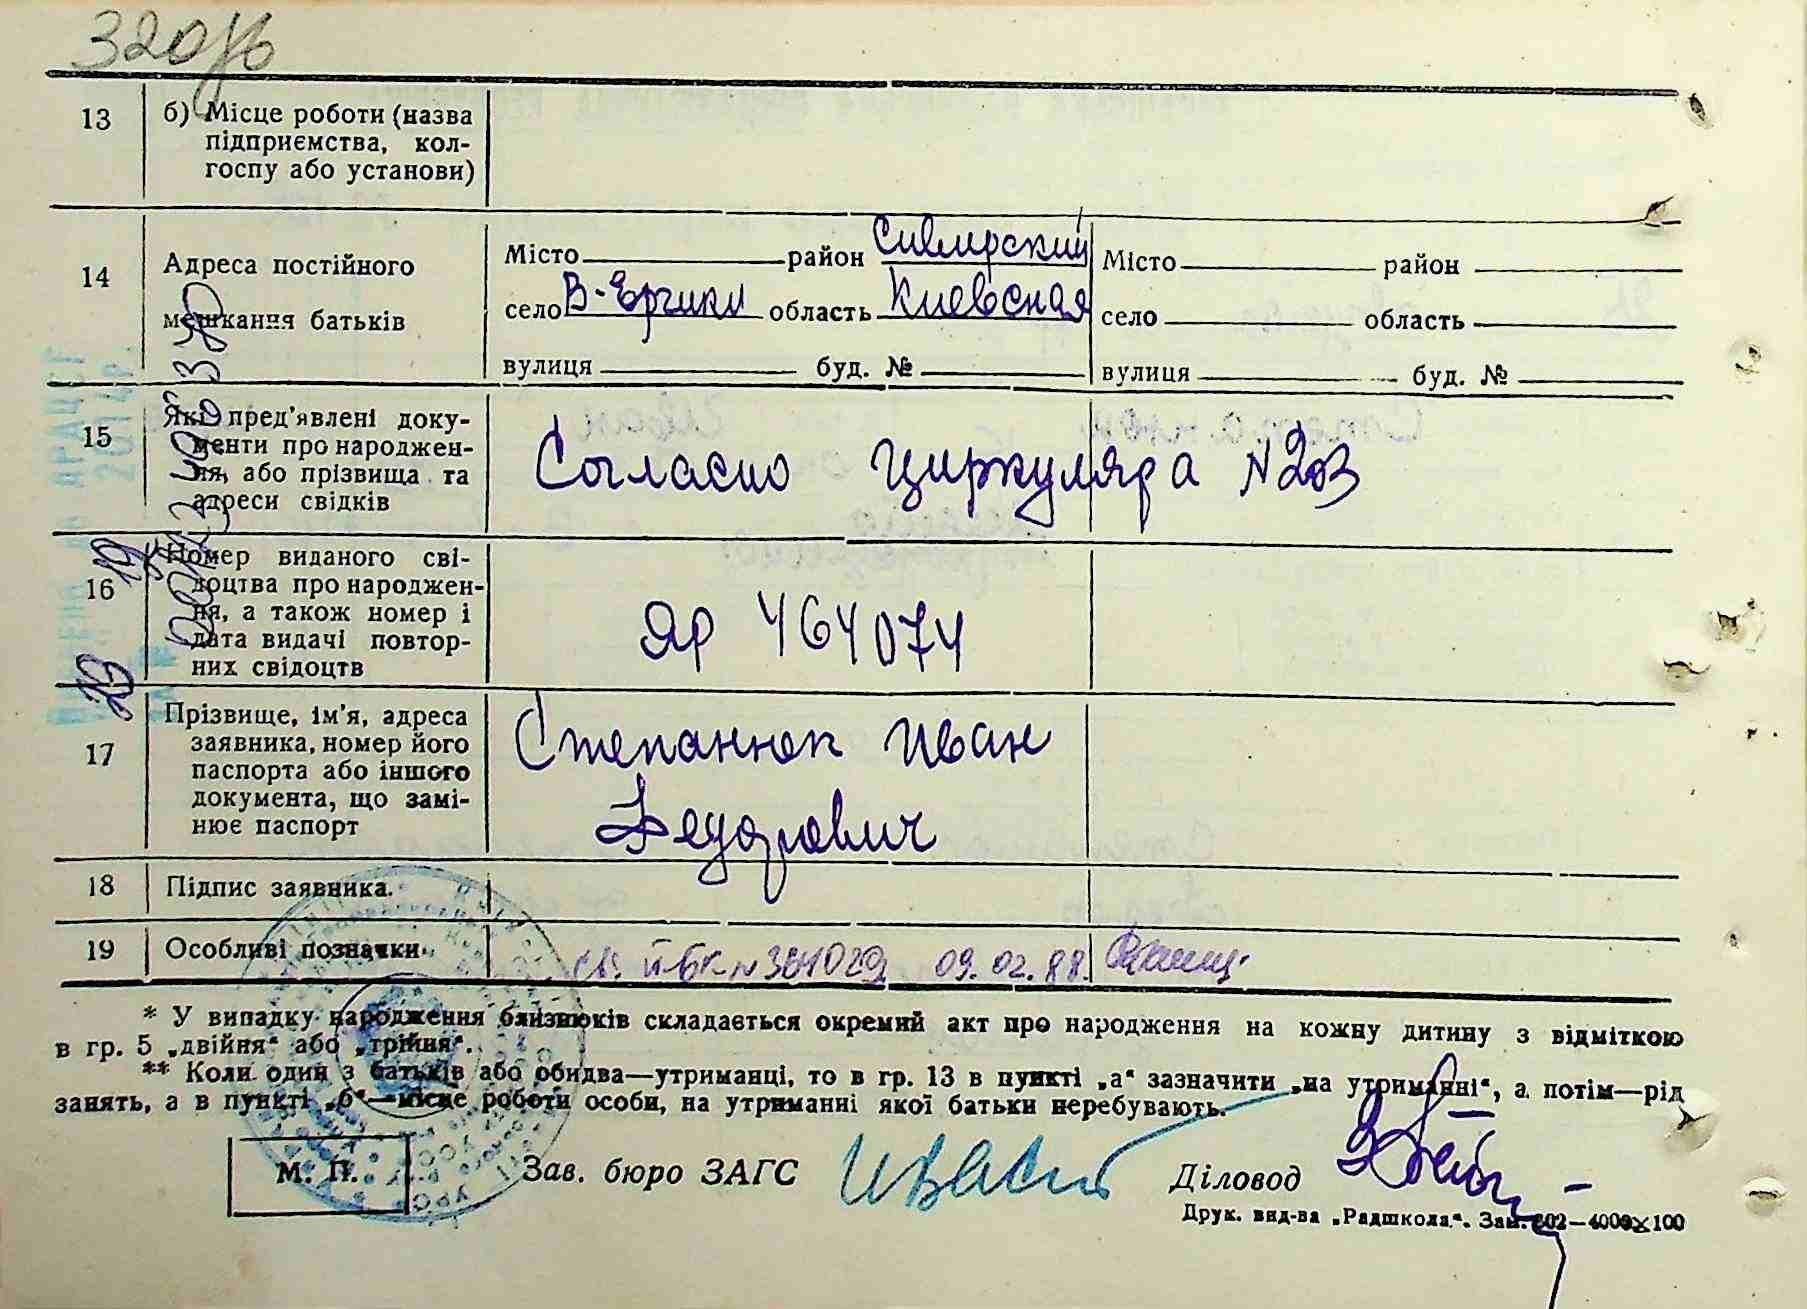 13 б) Місце роботи (назва
підприємства, кол-
госпу або установи)
14 Адреса постійного
мешкання батьків
Місто район Сквирский
село В-Ерчики область Киевская
вулиця буд. №
Місто район
село область
вулиця буд. №
15 Які пред'явлені доку-
менти про народжен-
ня, або прізвища та
адреси свідків
Согласно циркуляра N 203
16 Номер виданого сві-
доцтва про народжен-
ня, а також номер і
дата видачі повтор-
них свідоцтв
ЯР 464074
17 Прізвище, ім'я, адреса
заявника, номер його
паспорта або іншого
документа, що замі-
нює паспорт
Степанюк Иван
Федорович
18 Підпис заявника.
19 Особливі позначки
св. ІІ-БК N 384029 09.02.88.
* У випадку народження близнюків складається окремий акт про народження на кожну дитину з відміткою
в гр. 5 „двійня“ або „трійня“.
** Коли один з батьків або обидва—утриманці, то в гр. 13 в пункті „а“ зазначити „на утриманні“, а потім—рід
занять, а в пункті „б“—місце роботи особи, на утриманні якої батьки перебувають.
М. П. Зав. бюро ЗАГС Діловод
Друк. вид-ва „Радшкола“. Зам. 802—4000×100